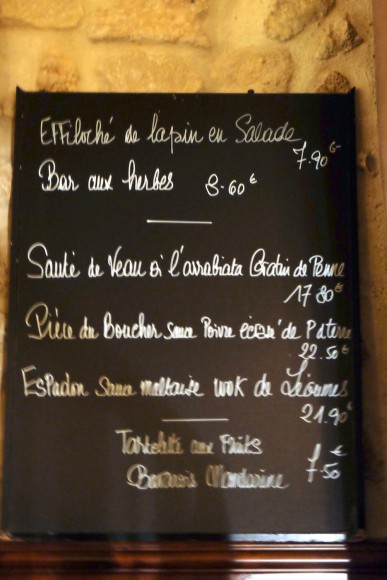 Effiloché de lapin en Salade
7.90€
Bar aux herbes 8.60€
Sauté de Veau à l'arrabiata Gratin de Penne
17 80€
Pièce du Boucher Sauce Poivre écrasé de Patate
22.50€
Espadon Sauce maltaise wok de Légumes
21.90€
Tartelette aux Fruits
Bavarois Mandarine 7.50€